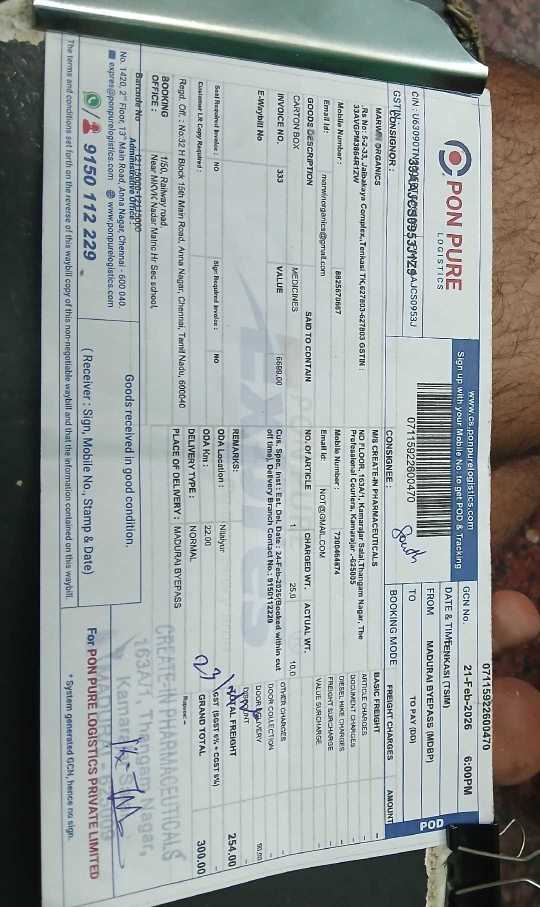 PON PURE
LOGISTICS
www.cs.ponpurelogistics.com
Sign up with your Mobile No. to get POD & Tracking
07115922600470
GCN No. 07115922600470
DATE & TIME 21-Feb-2026 6:00PM
FROM TENKASI (TSIM)
TO MADURAI BYEPASS (MDBP)
BOOKING MODE TO PAY (DD)
POD
South
CONSIGNOR :
ORGANICS
Rs No: 5-2-33, Jaibakaya Complex,,Tenkasi TK,627803-627803 GSTIN :
33AVGPM3864R1ZW
Mobile Number : 8825670687
Email Id: marwinorganics@gmail.com
CONSIGNEE :
M/S CREATE-IN PHARMACEUTICALS
NO FLOOR, 163A/1, Kamarajar Salai,Thangam Nagar, The
Professional Couriers, Kamarajar -625005
Mobile Number : 7200464674
Email Id: NOT@GMAIL.COM
FREIGHT CHARGES AMOUNT
BASIC FREIGHT -
ARTICLE CHARGES -
DOCUMENT CHARGES -
DIESEL HIKE CHARGES -
FREIGHT SURCHARGE -
VALUE SURCHARGE -
OTHER CHARGES
DOOR COLLECTION
DOOR DELIVERY 90.00
TOTAL FREIGHT 254.00
GST (SGST 6% + CGST 6%)
GRAND TOTAL 300.00
GOODS DESCRIPTION SAID TO CONTAIN NO. OF ARTICLE CHARGED WT. ACTUAL WT.
CARTON BOX MEDICINES 1 25.0 10.0
INVOICE NO. 333 VALUE 6689.00
E-Waybill No
Cus. Spec. Inst : Est. Del. Date : 24-Feb-2026(Booked within cut
off time), Delivery Branch Contact No.: 9150112228
REMARKS:
Seal Required Invoice : NO Sign Required Invoice : NO
Customer LR Copy Required :
ODA Location : Nilaiyur
ODA Km : 22.00
DELIVERY TYPE : NORMAL
PLACE OF DELIVERY : MADURAI BYEPASS
Regd. Off. : No:32 H Block 15th Main Road, Anna Nagar, Chennai, Tamil Nadu, 600040
BOOKING OFFICE : 1/50, Railway road,
Near MKVK Nadar Matric Hr Sec school,
Administrative Office
No. 1420, 2nd Floor, 13th Main Road, Anna Nagar, Chennai - 600 040.
expres@ponpurelogistics.com www.ponpurelogistics.com
9150 112 229
Goods received in good condition.
( Receiver : Sign, Mobile No., Stamp & Date)
CREATE-IN PHARMACEUTICALS
163A/1, Thangam Nagar,
For PON PURE LOGISTICS PRIVATE LIMITED
* System generated GCN, hence no sign.
The terms and conditions set forth on the reverse of this waybill copy of this non-negotiable waybill and that the information contained on this waybill